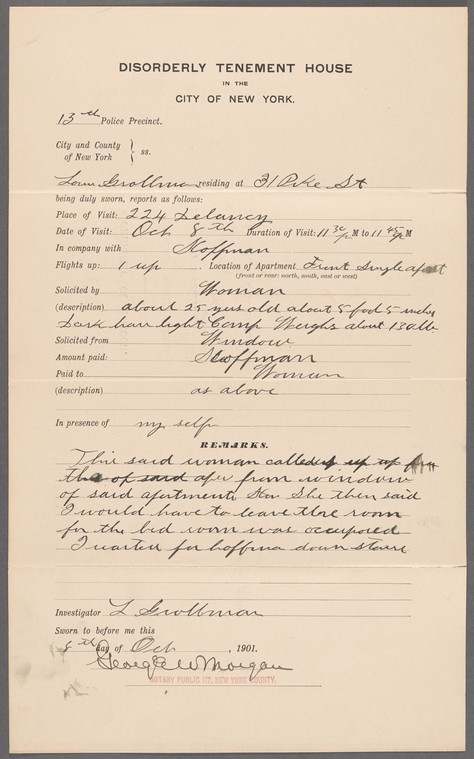 DISORDERLY TENEMENT HOUSE
IN THE
CITY OF NEW YORK.
13th Police Precinct.
City and County
of New York } ss.
Louis Grollman residing at 31 Pike St
being duly sworn, reports as follows:
Place of Visit: 224 Delancy
Date of Visit: Oct 8th Duration of Visit: 11 30/P M to 11 45/P M
In company with Hoffman
Flights up: 1 up . Location of Apartment Front Single apart
(front or rear: north, south, east or west)
Solicited by Woman
(description) about 25 years old about 5 foot 5 inches
Dark hair light Comp Weighs about 130 lb
Solicited from Window
Amount paid: Hoffman
Paid to Woman
(description) as above
In presence of my self
REMARKS.
This said woman called up
the of said from window
of said apartment She then said
I would have to leave the room
for the bed room was occupied
I waited for hoffman down stairs
Investigator L Grollman
Sworn to before me this
8th day of Oct , 1901.
George W Morgan
NOTARY PUBLIC NEW YORK COUNTY.